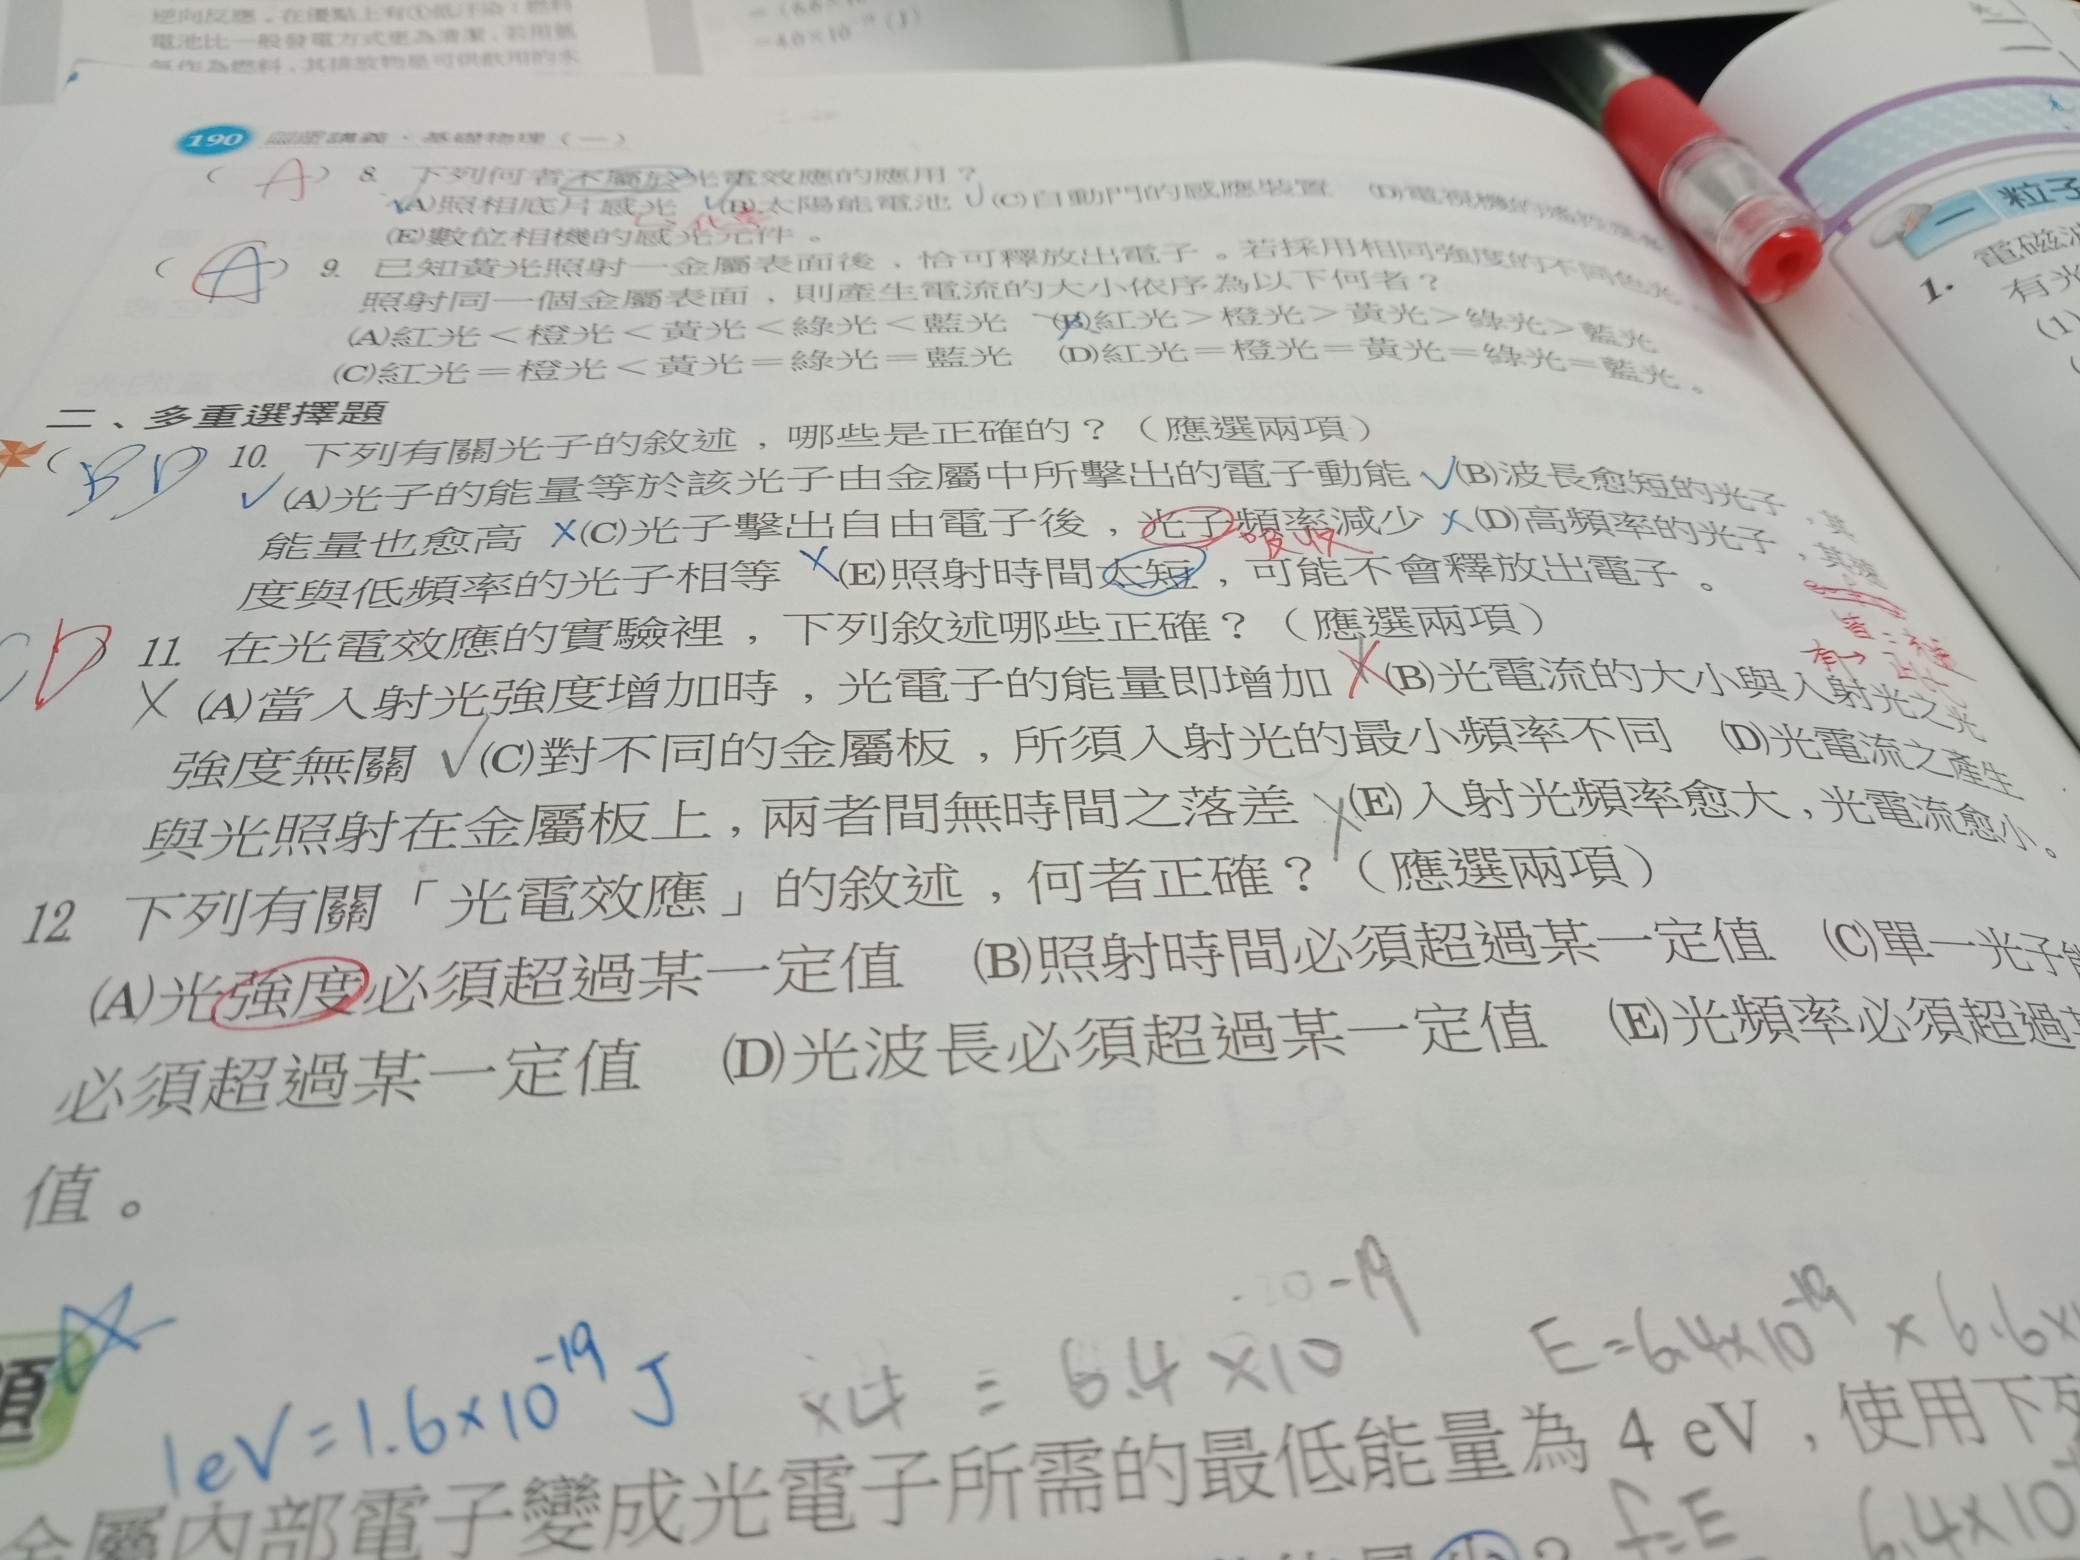 逆向反應。在優點上有①低汙染：燃料
電池比一般發電方式更為清潔，若用氫
氣作為燃料，其排放物是可供飲用的水
190 講義・基礎物理（一）
( A ) 8. 下列何者不屬於光電效應的應用？
(A)照相底片感光 (B)太陽能電池 (C)自動門的感應裝置 (D)電視機的
(E)數位相機的感光元件。
( A ) 9. 已知黃光照射一金屬表面後，恰可釋放出電子。若採用相同強度的不同色光，
照射同一個金屬表面，則產生電流的大小依序為以下何者？
(A)紅光＜橙光＜黃光＜綠光＜藍光 (B)紅光＞橙光＞黃光＞綠光＞藍光
(C)紅光＝橙光＜黃光＝綠光＝藍光 (D)紅光＝橙光＝黃光＝綠光＝藍光。
二、多重選擇題
( BD 10. 下列有關光子的敘述，哪些是正確的？（應選兩項）
(A)光子的能量等於該光子由金屬中所擊出的電子動能 (B)波長愈短的光子，其
能量也愈高 (C)光子擊出自由電子後，光子頻率減少 (D)高頻率的光子，其速
吸收
度與低頻率的光子相等 (E)照射時間太短，可能不會釋放出電子。
CD 11. 在光電效應的實驗裡，下列敘述哪些正確？（應選兩項）
(A)當入射光強度增加時，光電子的能量即增加 (B)光電流的大小與入射光之光
強度無關 (C)對不同的金屬板，所須入射光的最小頻率不同 (D)光電流之產生
與光照射在金屬板上，兩者間無時間之落差 (E)入射光頻率愈大，光電流愈小。
12 下列有關「光電效應」的敘述，何者正確？（應選兩項）
(A)光強度必須超過某一定值 (B)照射時間必須超過某一定值 (C)單一光子能
必須超過某一定值 (D)光波長必須超過某一定值 (E)光頻率必須超過某
值。
題
1eV=1.6×10⁻¹⁹J ×4 = 6.4×10⁻¹⁹ E=6.4×10⁻¹⁹×6.6×
金屬內部電子變成光電子所需的最低能量為 4 eV，使用下列
f=E 6.4×10
一 粒子
1. 電磁波
有光
(1)